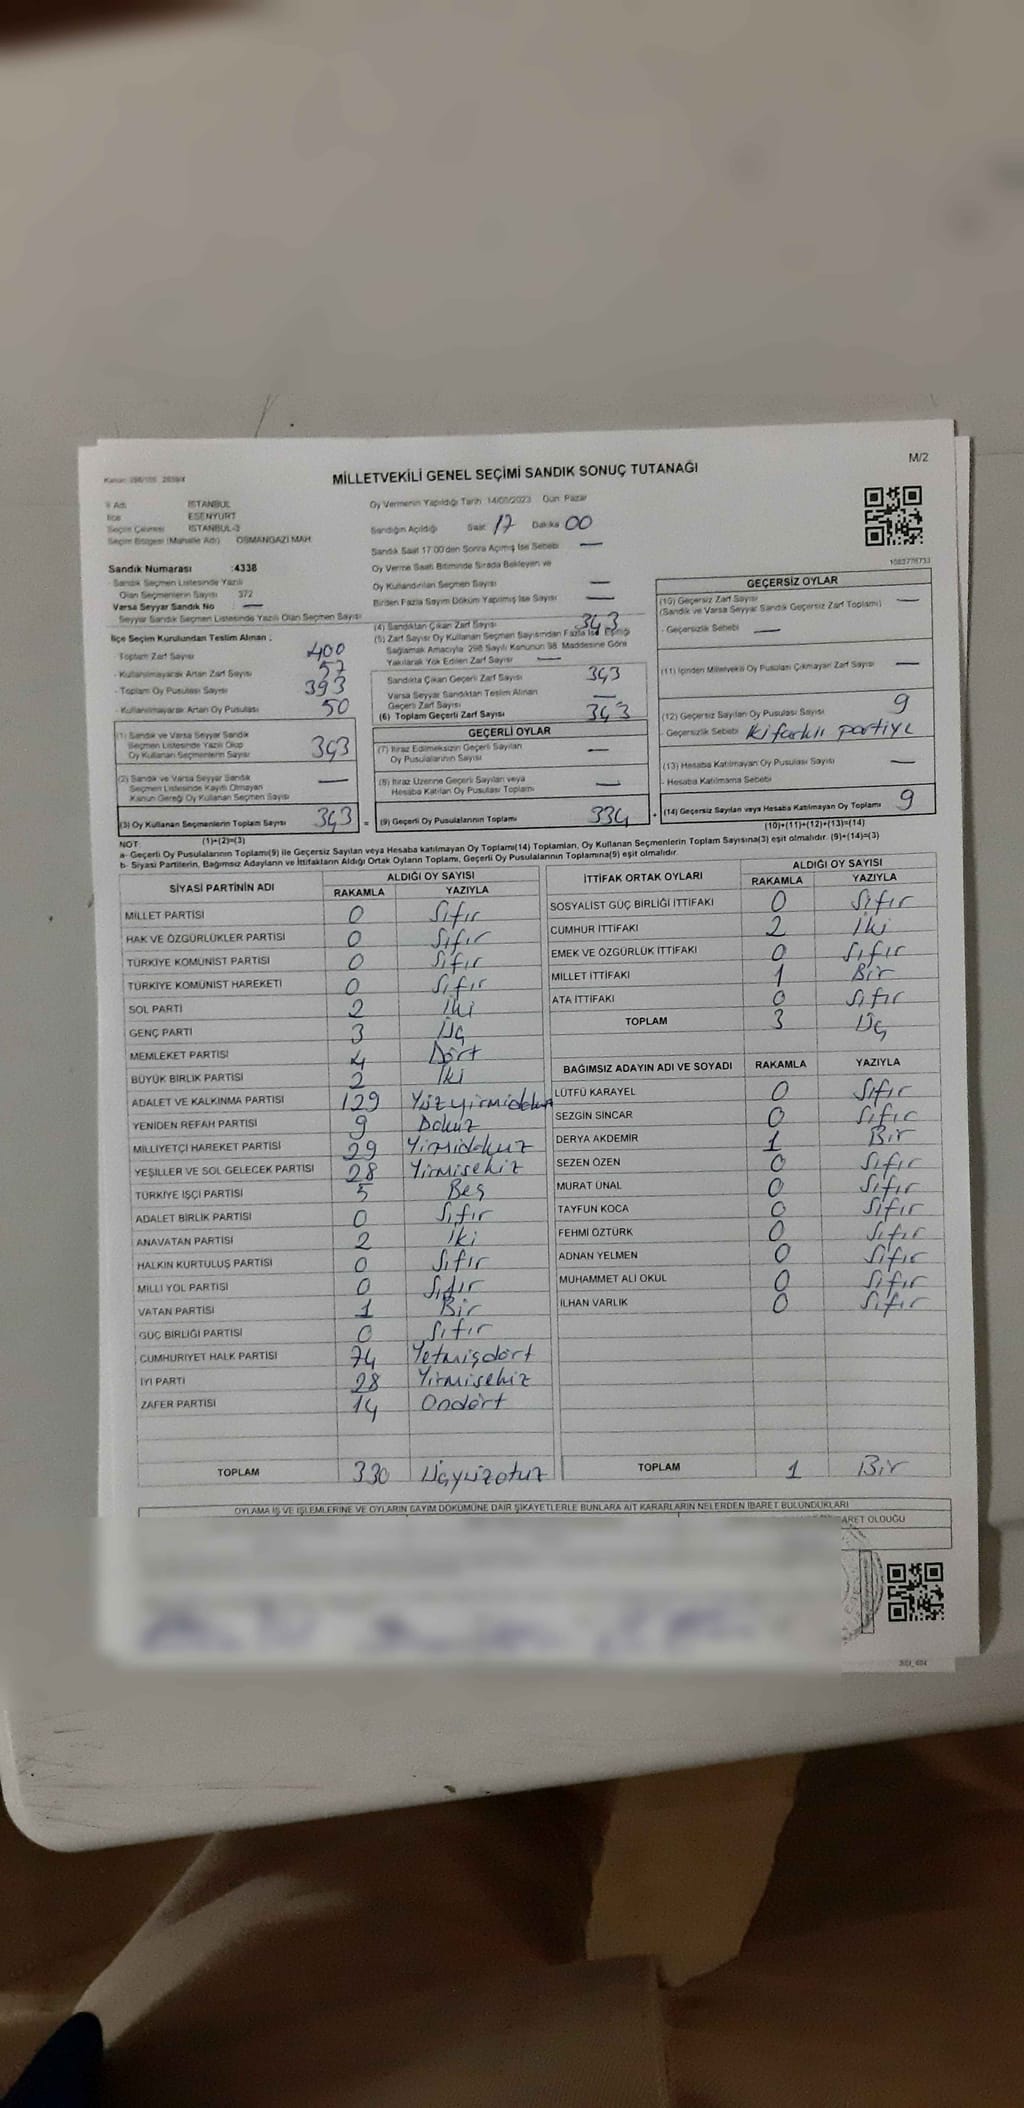 M/2
MİLLETVEKİLİ GENEL SEÇİMİ SANDIK SONUÇ TUTANAĞI
İl Adı İSTANBUL
İlçe ESENYURT
Seçim Çevresi İSTANBUL-3
Seçim Bölgesi (Mahalle Adı) OSMANGAZİ MAH
Sandık Numarası :4338
- Sandık Seçmen Listesinde Yazılı
Olan Seçmenlerin Sayısı 372
Varsa Seyyar Sandık No —
Seyyar Sandık Seçmen Listesinde Yazılı Olan Seçmen Sayısı
İlçe Seçim Kurulundan Teslim Alınan ;
- Toplam Zarf Sayısı 400
- Kullanılmayarak Artan Zarf Sayısı 57
- Toplam Oy Pusulası Sayısı 393
- Kullanılmayarak Artan Oy Pusulası 50
(1) Sandık ve Varsa Seyyar Sandık
Seçmen Listesinde Yazılı Olup
Oy Kullanan Seçmenlerin Sayısı 343
(2) Sandık ve Varsa Seyyar Sandık
Seçmen Listesinde Kayıtlı Olmayan
Kanun Gereği Oy Kullanan Seçmen Sayısı —
(3) Oy Kullanan Seçmenlerin Toplam Sayısı 343 =
(1)+(2)=(3)
Oy Vermenin Yapıldığı Tarih 14/05/2023 Gün: Pazar
Sandığın Açıldığı Saat 17 Dakika 00
Sandık Saat 17.00'den Sonra Açılmış İse Sebebi —
Oy Verme Saati Bitiminde Sırada Bekleyen ve
Oy Kullandırılan Seçmen Sayısı —
Birden Fazla Sayım Döküm Yapılmış İse Sayısı —
(4) Sandıktan Çıkan Zarf Sayısı 343
(5) Zarf Sayısı Oy Kullanan Seçmen Sayısından Fazla İse, Eşitliği
Sağlamak Amacıyla 298 Sayılı Konunun 98. Maddesine Göre
Yakılarak Yok Edilen Zarf Sayısı —
Sandıkta Çıkan Geçerli Zarf Sayısı 343
Varsa Seyyar Sandıktan Teslim Alınan
Geçerli Zarf Sayısı —
(6) Toplam Geçerli Zarf Sayısı 343
GEÇERLİ OYLAR
(7) İtiraz Edilmeksizin Geçerli Sayılan
Oy Pusulalarının Sayısı —
(8) İtiraz Üzerine Geçerli Sayılan veya
Hesaba Katılan Oy Pusulası Toplamı —
(9) Geçerli Oy Pusulalarının Toplamı 334 +
1082776733
GEÇERSİZ OYLAR
(10) Geçersiz Zarf Sayısı —
(Sandık ve Varsa Seyyar Sandık Geçersiz Zarf Toplamı)
- Geçersizlik Sebebi —
(11) İçinden Milletvekili Oy Pusulası Çıkmayan Zarf Sayısı —
(12) Geçersiz Sayılan Oy Pusulası Sayısı 9
- Geçersizlik Sebebi İki farklı partiye
(13) Hesaba Katılmayan Oy Pusulası Sayısı —
- Hesaba Katılmama Sebebi
(14) Geçersiz Sayılan veya Hesaba Katılmayan Oy Toplamı 9
(10)+(11)+(12)+(13)=(14)
NOT
a- Geçerli Oy Pusulalarının Toplamı(9) ile Geçersiz Sayılan veya Hesaba katılmayan Oy Toplamı(14) Toplamları, Oy Kullanan Seçmenlerin Toplam Sayısına(3) eşit olmalıdır. (9)+(14)=(3)
b- Siyasi Partilerin, Bağımsız Adayların ve İttifakların Aldığı Ortak Oyların Toplamı, Geçerli Oy Pusulalarının Toplamına(9) eşit olmalıdır.
SİYASİ PARTİNİN ADI ALDIĞI OY SAYISI
RAKAMLA YAZIYLA
MİLLET PARTİSİ 0 Sıfır
HAK VE ÖZGÜRLÜKLER PARTİSİ 0 Sıfır
TÜRKİYE KOMÜNİST PARTİSİ 0 Sıfır
TÜRKİYE KOMÜNİST HAREKETİ 0 Sıfır
SOL PARTİ 2 İki
GENÇ PARTİ 3 Üç
MEMLEKET PARTİSİ 4 Dört
BÜYÜK BİRLİK PARTİSİ 2 İki
ADALET VE KALKINMA PARTİSİ 129 Yüzyirmidokuz
YENİDEN REFAH PARTİSİ 9 Dokuz
MİLLİYETÇİ HAREKET PARTİSİ 29 Yirmidokuz
YEŞİLLER VE SOL GELECEK PARTİSİ 28 Yirmisekiz
TÜRKİYE İŞÇİ PARTİSİ 5 Beş
ADALET BİRLİK PARTİSİ 0 Sıfır
ANAVATAN PARTİSİ 2 İki
HALKIN KURTULUŞ PARTİSİ 0 Sıfır
MİLLİ YOL PARTİSİ 0 Sıfır
VATAN PARTİSİ 1 Bir
GÜÇ BİRLİĞİ PARTİSİ 0 Sıfır
CUMHURİYET HALK PARTİSİ 74 Yetmişdört
İYİ PARTİ 28 Yirmisekiz
ZAFER PARTİSİ 14 Ondört
TOPLAM 330 Üçyüzotuz
İTTİFAK ORTAK OYLARI ALDIĞI OY SAYISI
RAKAMLA YAZIYLA
SOSYALİST GÜÇ BİRLİĞİ İTTİFAKI 0 Sıfır
CUMHUR İTTİFAKI 2 İki
EMEK VE ÖZGÜRLÜK İTTİFAKI 0 Sıfır
MİLLET İTTİFAKI 1 Bir
ATA İTTİFAKI 0 Sıfır
TOPLAM 3 Üç
BAĞIMSIZ ADAYIN ADI VE SOYADI RAKAMLA YAZIYLA
LÜTFÜ KARAYEL 0 Sıfır
SEZGİN SİNCAR 0 Sıfır
DERYA AKDEMİR 1 Bir
SEZEN ÖZEN 0 Sıfır
MURAT ÜNAL 0 Sıfır
TAYFUN KOCA 0 Sıfır
FEHMİ ÖZTÜRK 0 Sıfır
ADNAN YELMEN 0 Sıfır
MUHAMMET ALİ OKUL 0 Sıfır
İLHAN VARLIK 0 Sıfır
TOPLAM 1 Bir
OYLAMA İŞ VE İŞLEMLERİNE VE OYLARIN SAYIM DÖKÜMÜNE DAİR ŞİKAYETLERLE BUNLARA AİT KARARLARIN NELERDEN İBARET BULUNDUKLARI
ARET OLDUĞU